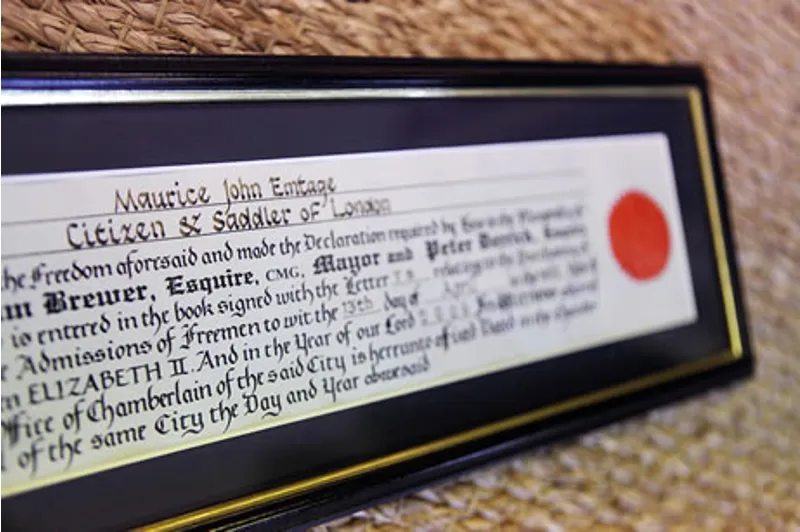 Maurice John Emtage
Citizen & Saddler of London
he Freedom aforesaid and made the Declaration required by Law in the
m Brewer, Esquire, CMG, Mayor and Peter
is entered in the book signed with the Letter relating to the
Admissions of Freemen to wit the 13th day of April in the
n ELIZABETH II. And in the Year of our Lord
ffice of Chamberlain of the said City is hereunto affixed Dated in the Chamber
of the same City the Day and Year abovesaid